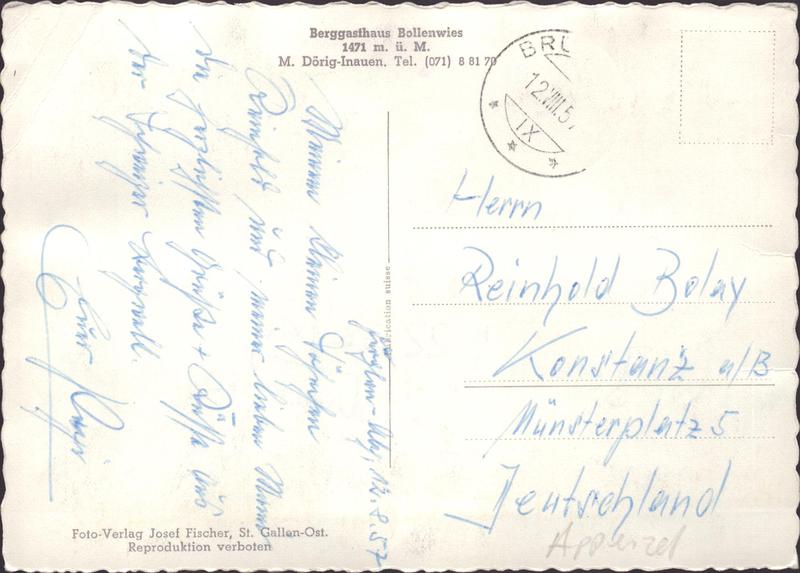 Berggasthaus Bollenwies
1471 m. ü. M.
M. Dörig-Inauen. Tel. (071) 8 81 70
BRÜ
12.VIII.57
IX
12.8.57
Meinem kleinen Söhnchen
Reinhold und meiner lieben Mama
die herzlichsten Grüße + Küsse aus
der Schweizer Bergwelt.
Euer Papi
Fabrication suisse
Herrn
Reinhold Bolay
Konstanz a/B
Münsterplatz 5
Deutschland
Appenzel
Foto-Verlag Josef Fischer, St. Gallen-Ost.
Reproduktion verboten